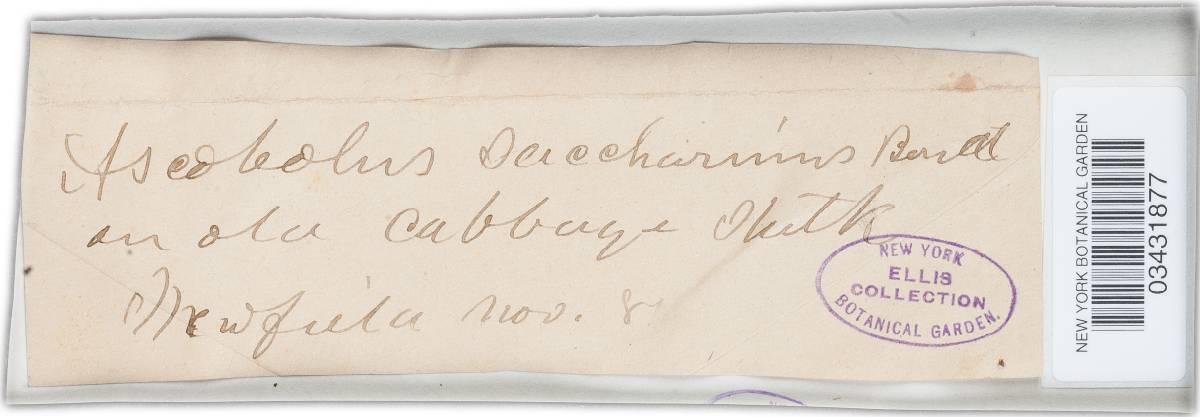 Ascobolus saccharinus Boud
on old cabbage
Newfield Nov. 8
NEW YORK
ELLIS
COLLECTION
BOTANICAL GARDEN.
NEW YORK BOTANICAL GARDEN
03431877